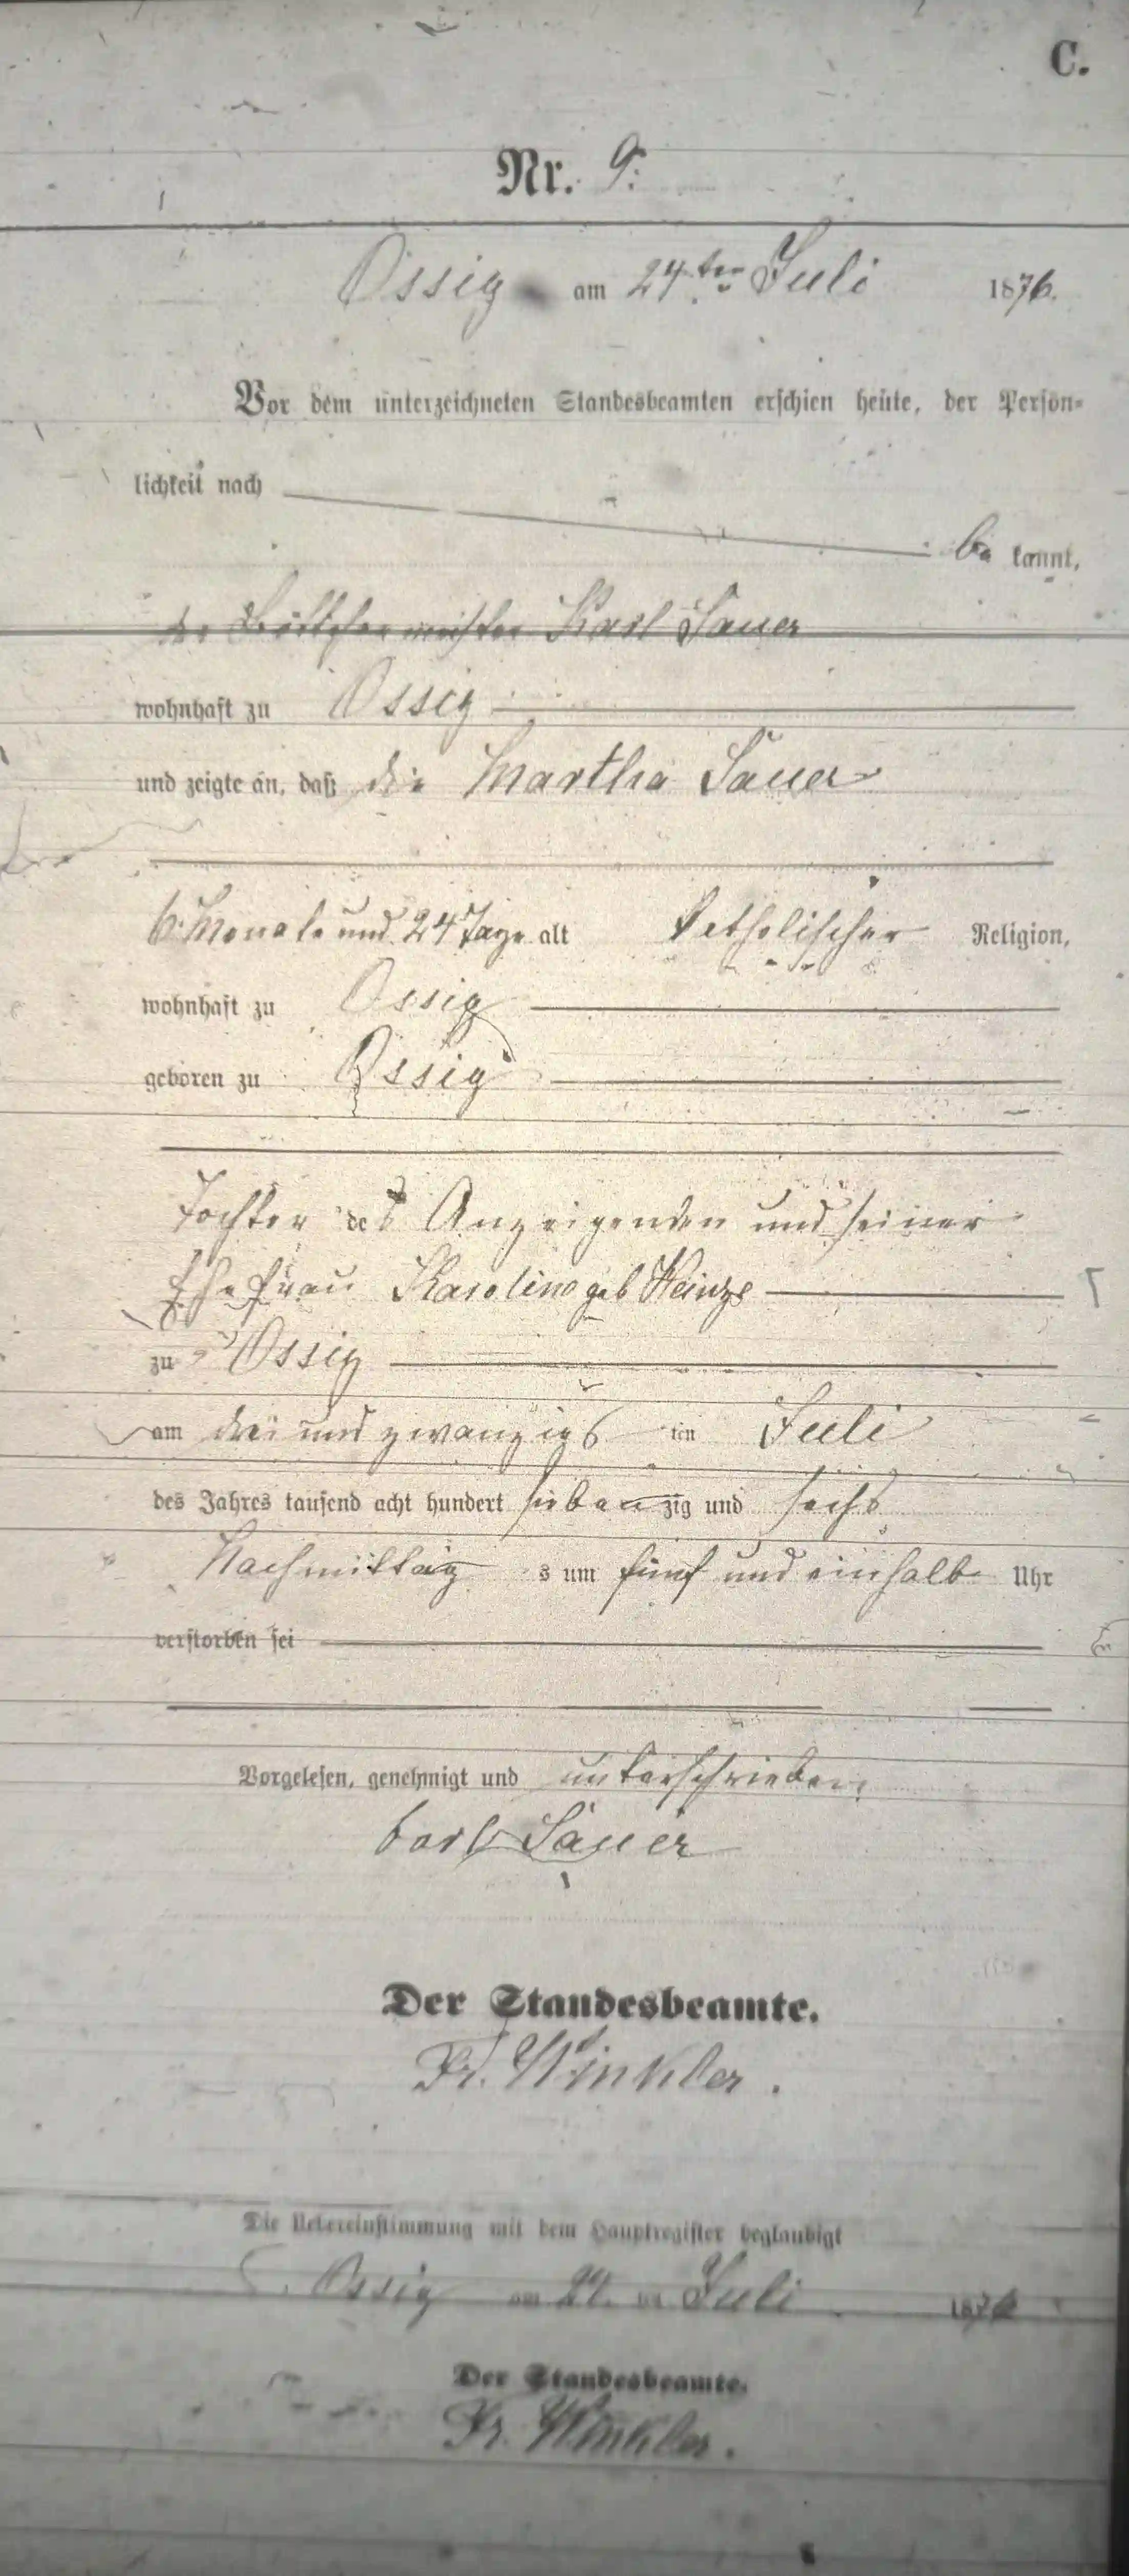 C.
Nr. 9.
Ossig am 24ten Juli 1876.
Vor dem unterzeichneten Standesbeamten erschien heute, der Persön-
lichkeit nach
be kannt,
der Böttchermeister Karl Sauer
wohnhaft zu Ossig
und zeigte an, daß die Martha Sauer
6 Monate und 24 Tage alt katholischer Religion,
wohnhaft zu Ossig
geboren zu Ossig
Tochter des Anzeigenden und seiner
Ehefrau Karoline geb Heinze
zu Ossig
am drei und zwanzigs ten Juli
des Jahres tausend acht hundert sieben zig und sechs
Nachmittag s um fünf und einhalb Uhr
verstorben sei
Vorgelesen, genehmigt und unterschrieben
Carl Sauer
Der Standesbeamte.
Fr. Winkler.
Die Uebereinstimmung mit dem Hauptregister beglaubigt
Ossig am 24. ten Juli 1876
Der Standesbeamte.
Fr. Winkler.